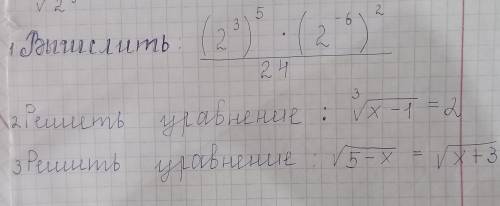 √2
1 Вычислить: (2³)⁵ · (2⁻⁶)² / 24
2 Решить уравнение: ³√x-1 = 2
3 Решить уравнение: √5-x = √x+3